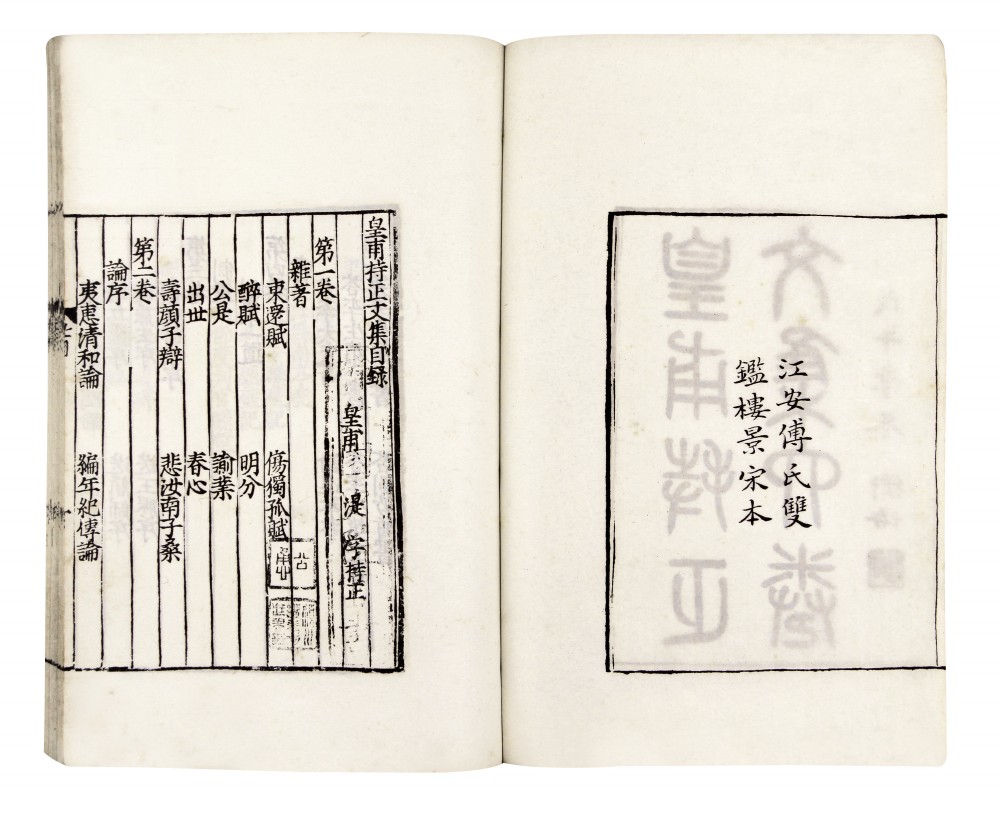 江安傅氏雙
鑑樓景宋本
皇甫持正文集目録
皇甫 湜 字持正
第一卷
雜著
東還賦 傷獨孤賦
醉賦 明分
公是 諭業
出世 春心
壽顔子辯 悲汝南子桑
第二卷
論序
夷惠清和論 編年紀傳論